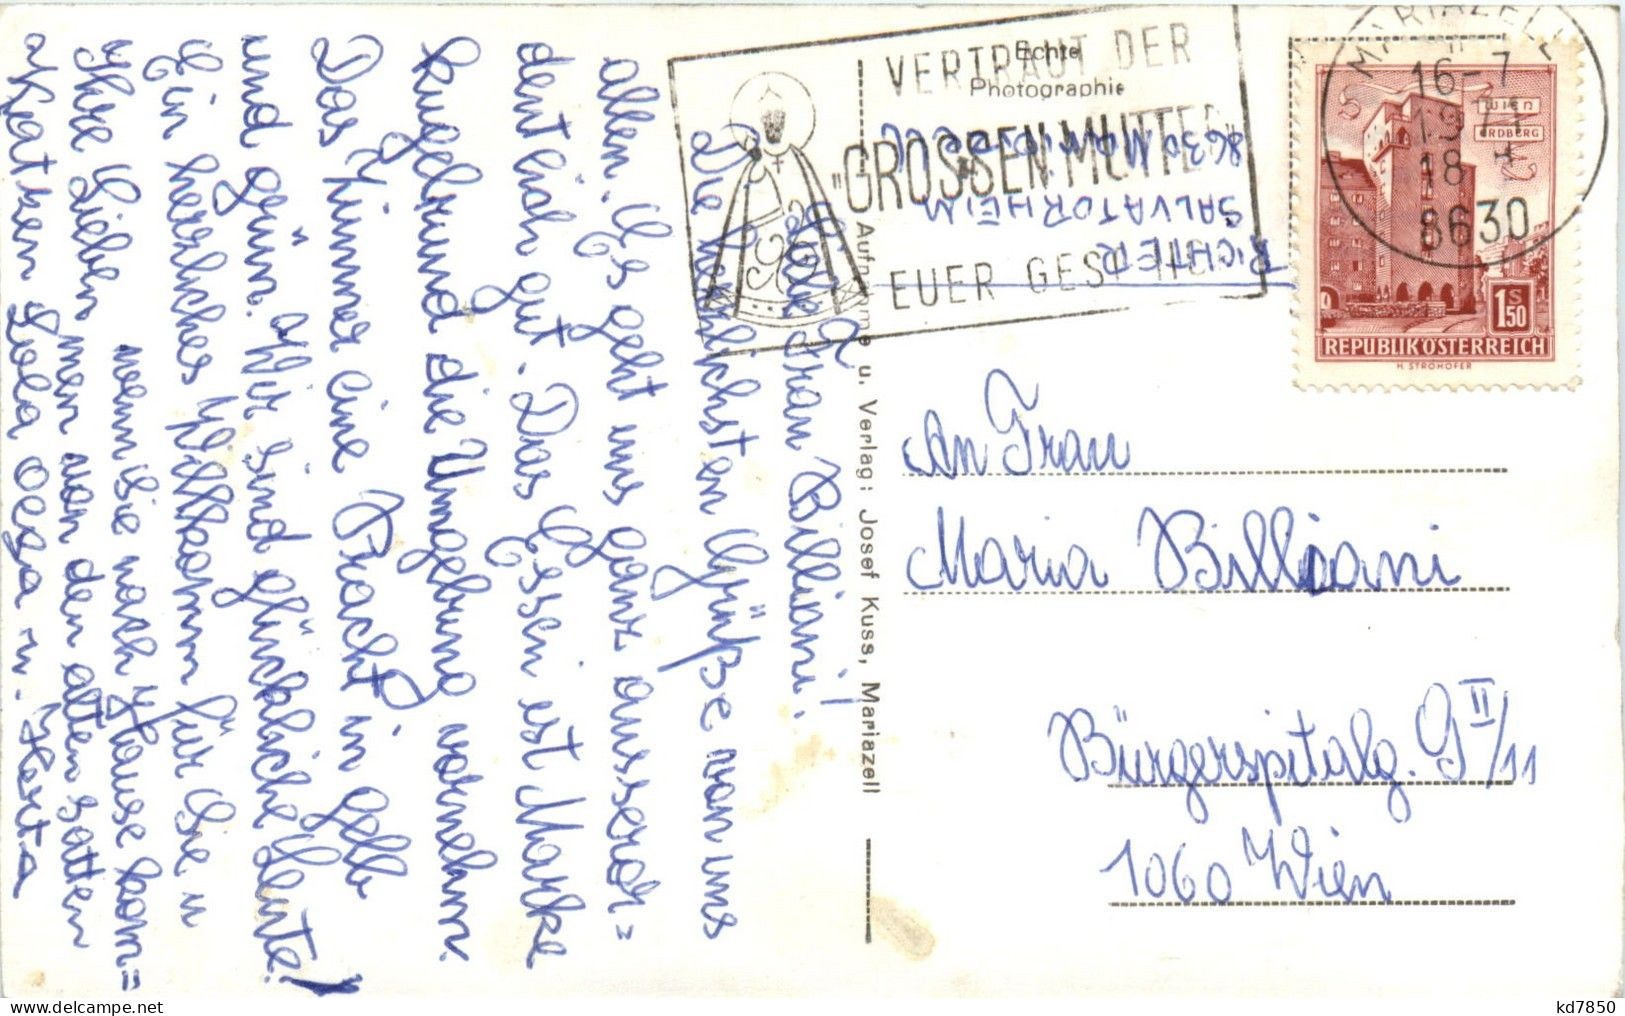 Echte
Photographie
VERTRAUT DER
„GROSSEN MUTTER
EUER GESPI
MARIAZELL
16-7
1971
18
8630
WIEN
ERDBERG
1 S 50
REPUBLIK ÖSTERREICH
H. STROHOFER
RICHTER
SALVATORHEIM
8630
Aufnahme u. Verlag: Josef Kuss, Mariazell
Liebe Frau Billiani!
Die herzlichsten Grüße von uns
allen. Es geht uns ganz ausseror=
dentlich gut. Das Essen ist Marke
kugelrund die Umgebung vornehm.
Das Zimmer eine Pracht in gelb
und grün. Wir sind glückliche Leute!
Ein herzliches Willkomm für Sie u
Ihre Lieben
wenn Sie nach Hause kom=
men von den alten satten
Katzen Lola Olga u. Herta
An Frau
Maria Billiani
Bürgerspitalg. 9 II/11
1060 Wien
kd7850